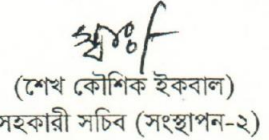 (শেখ কৌশিক ইকবাল)
সহকারী সচিব (সংস্থাপন-২)